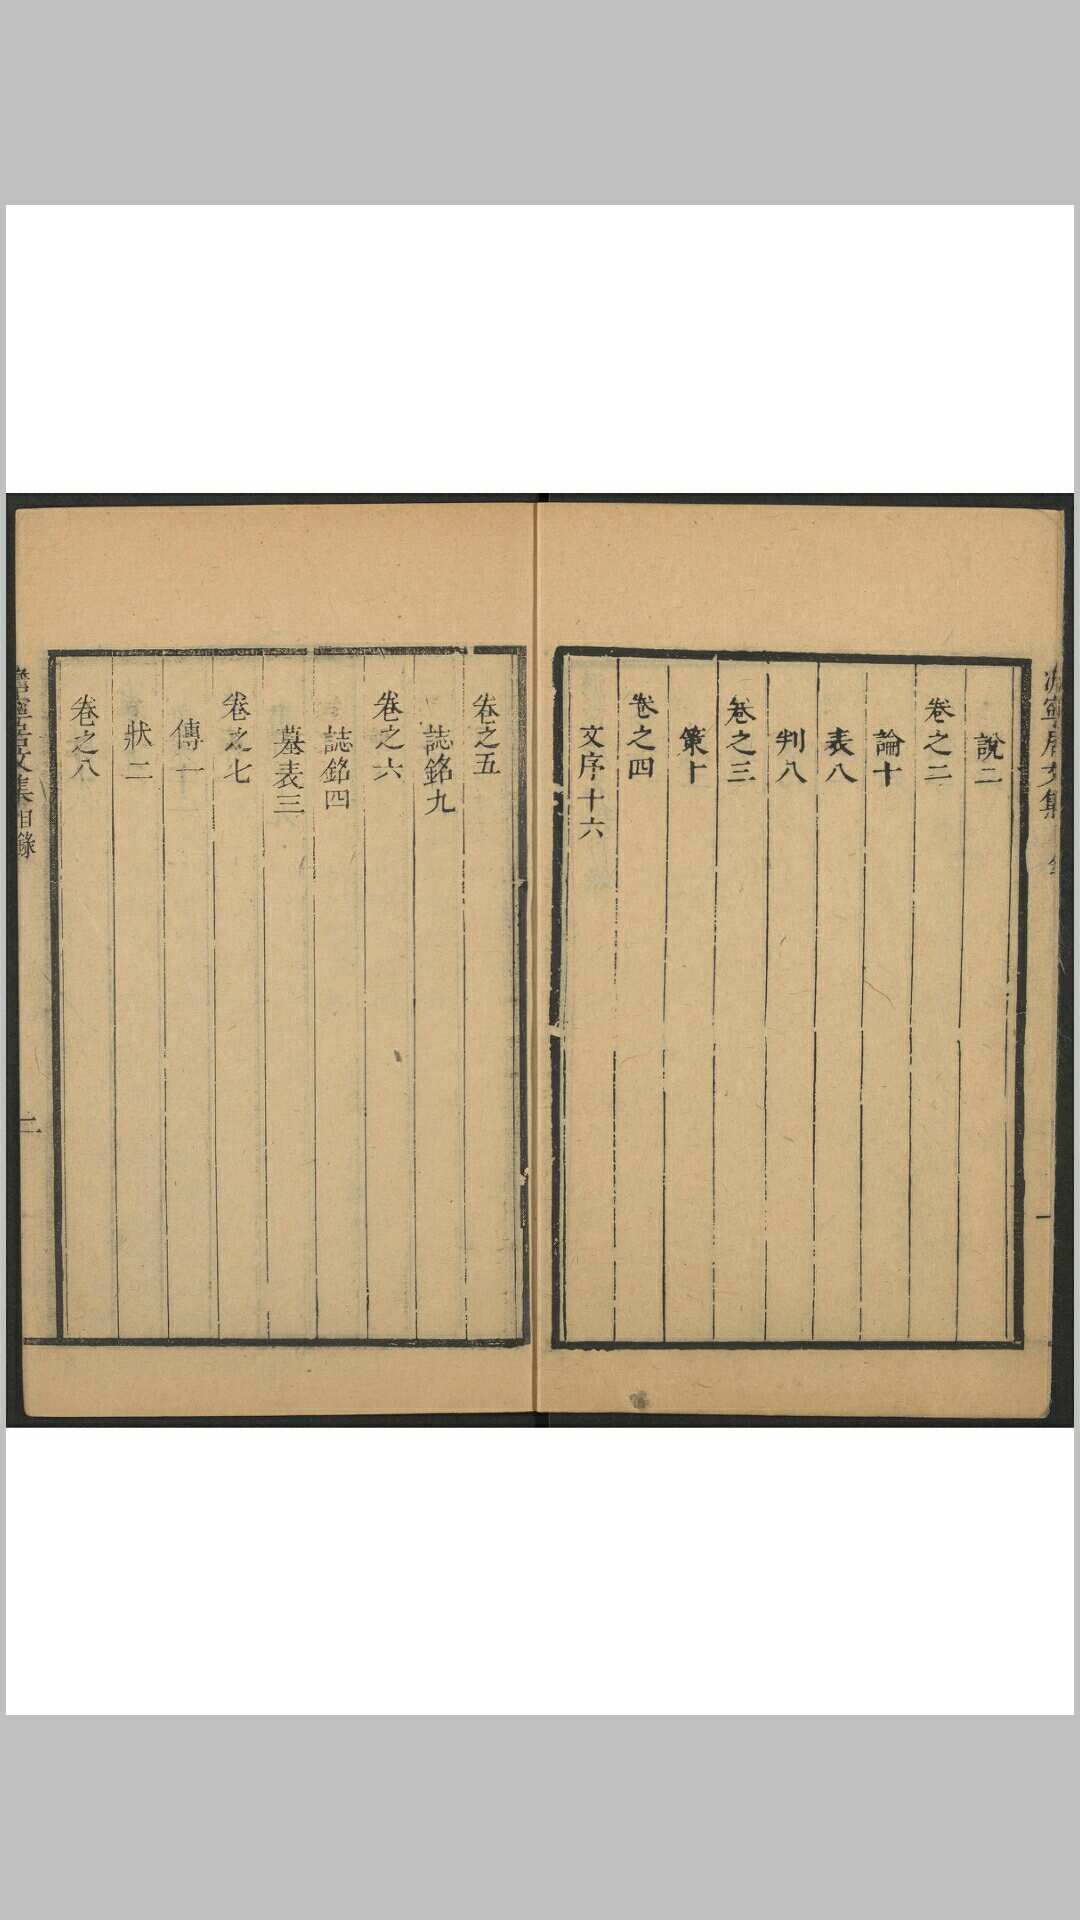 說二
卷之二
論十
表八
判八
卷之三
策十
卷之四
文序十六
卷之五
誌銘九
卷之六
誌銘四
墓表三
卷之七
傳一
狀二
卷之八
寧居文集目錄
二